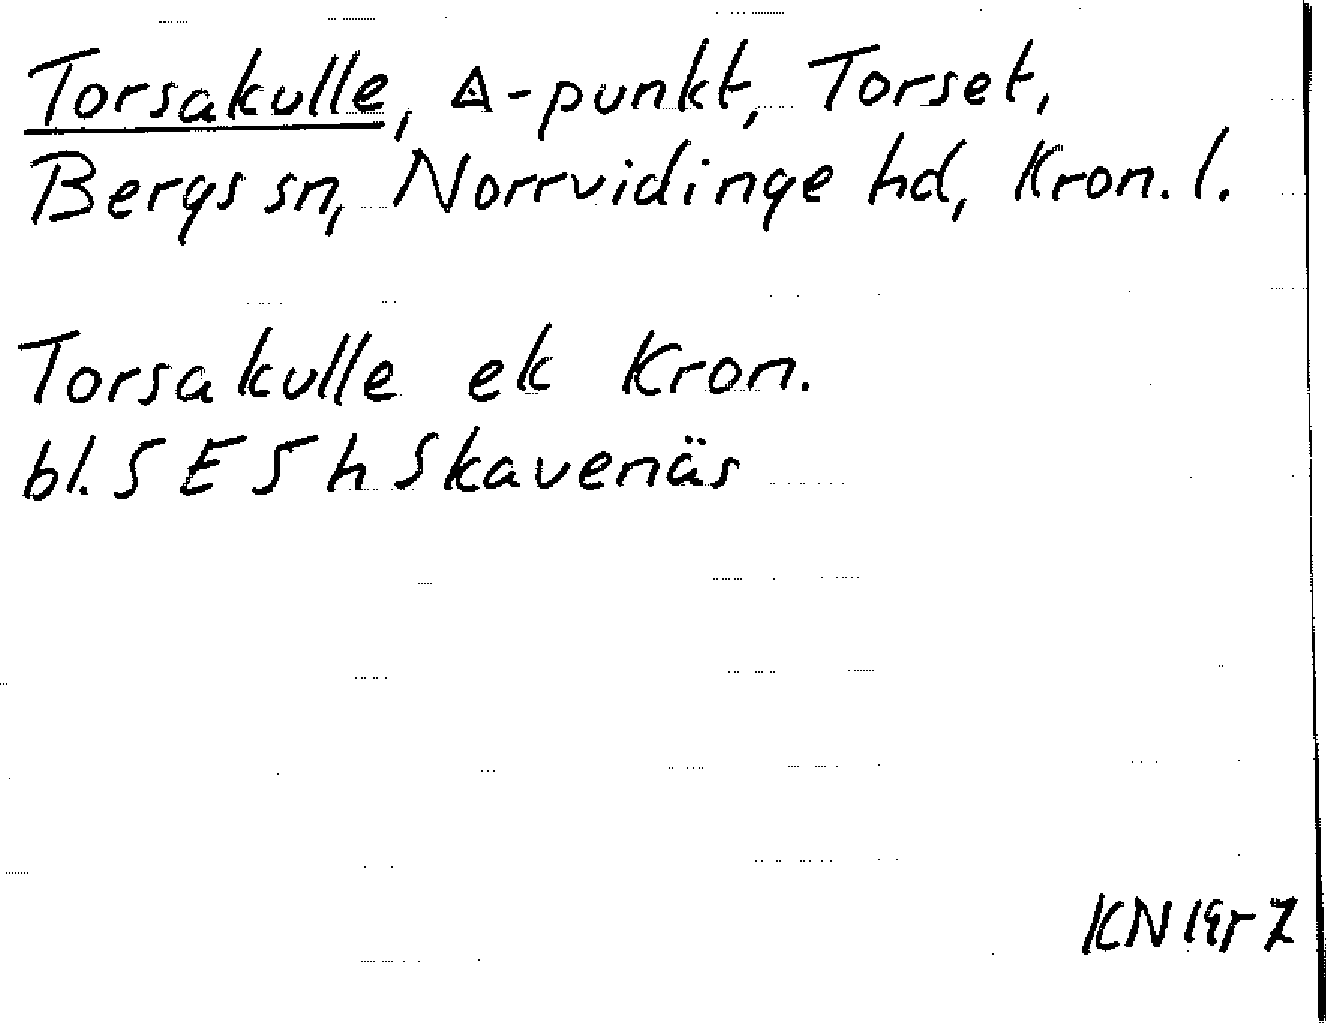 Torsakulle, △-punkt, Torset,
Bergs sn, Norrvidinge hd, Kron. l.
Torsakulle ek Kron.
bl. 5 E 5 h Skavenäs
KN 1957